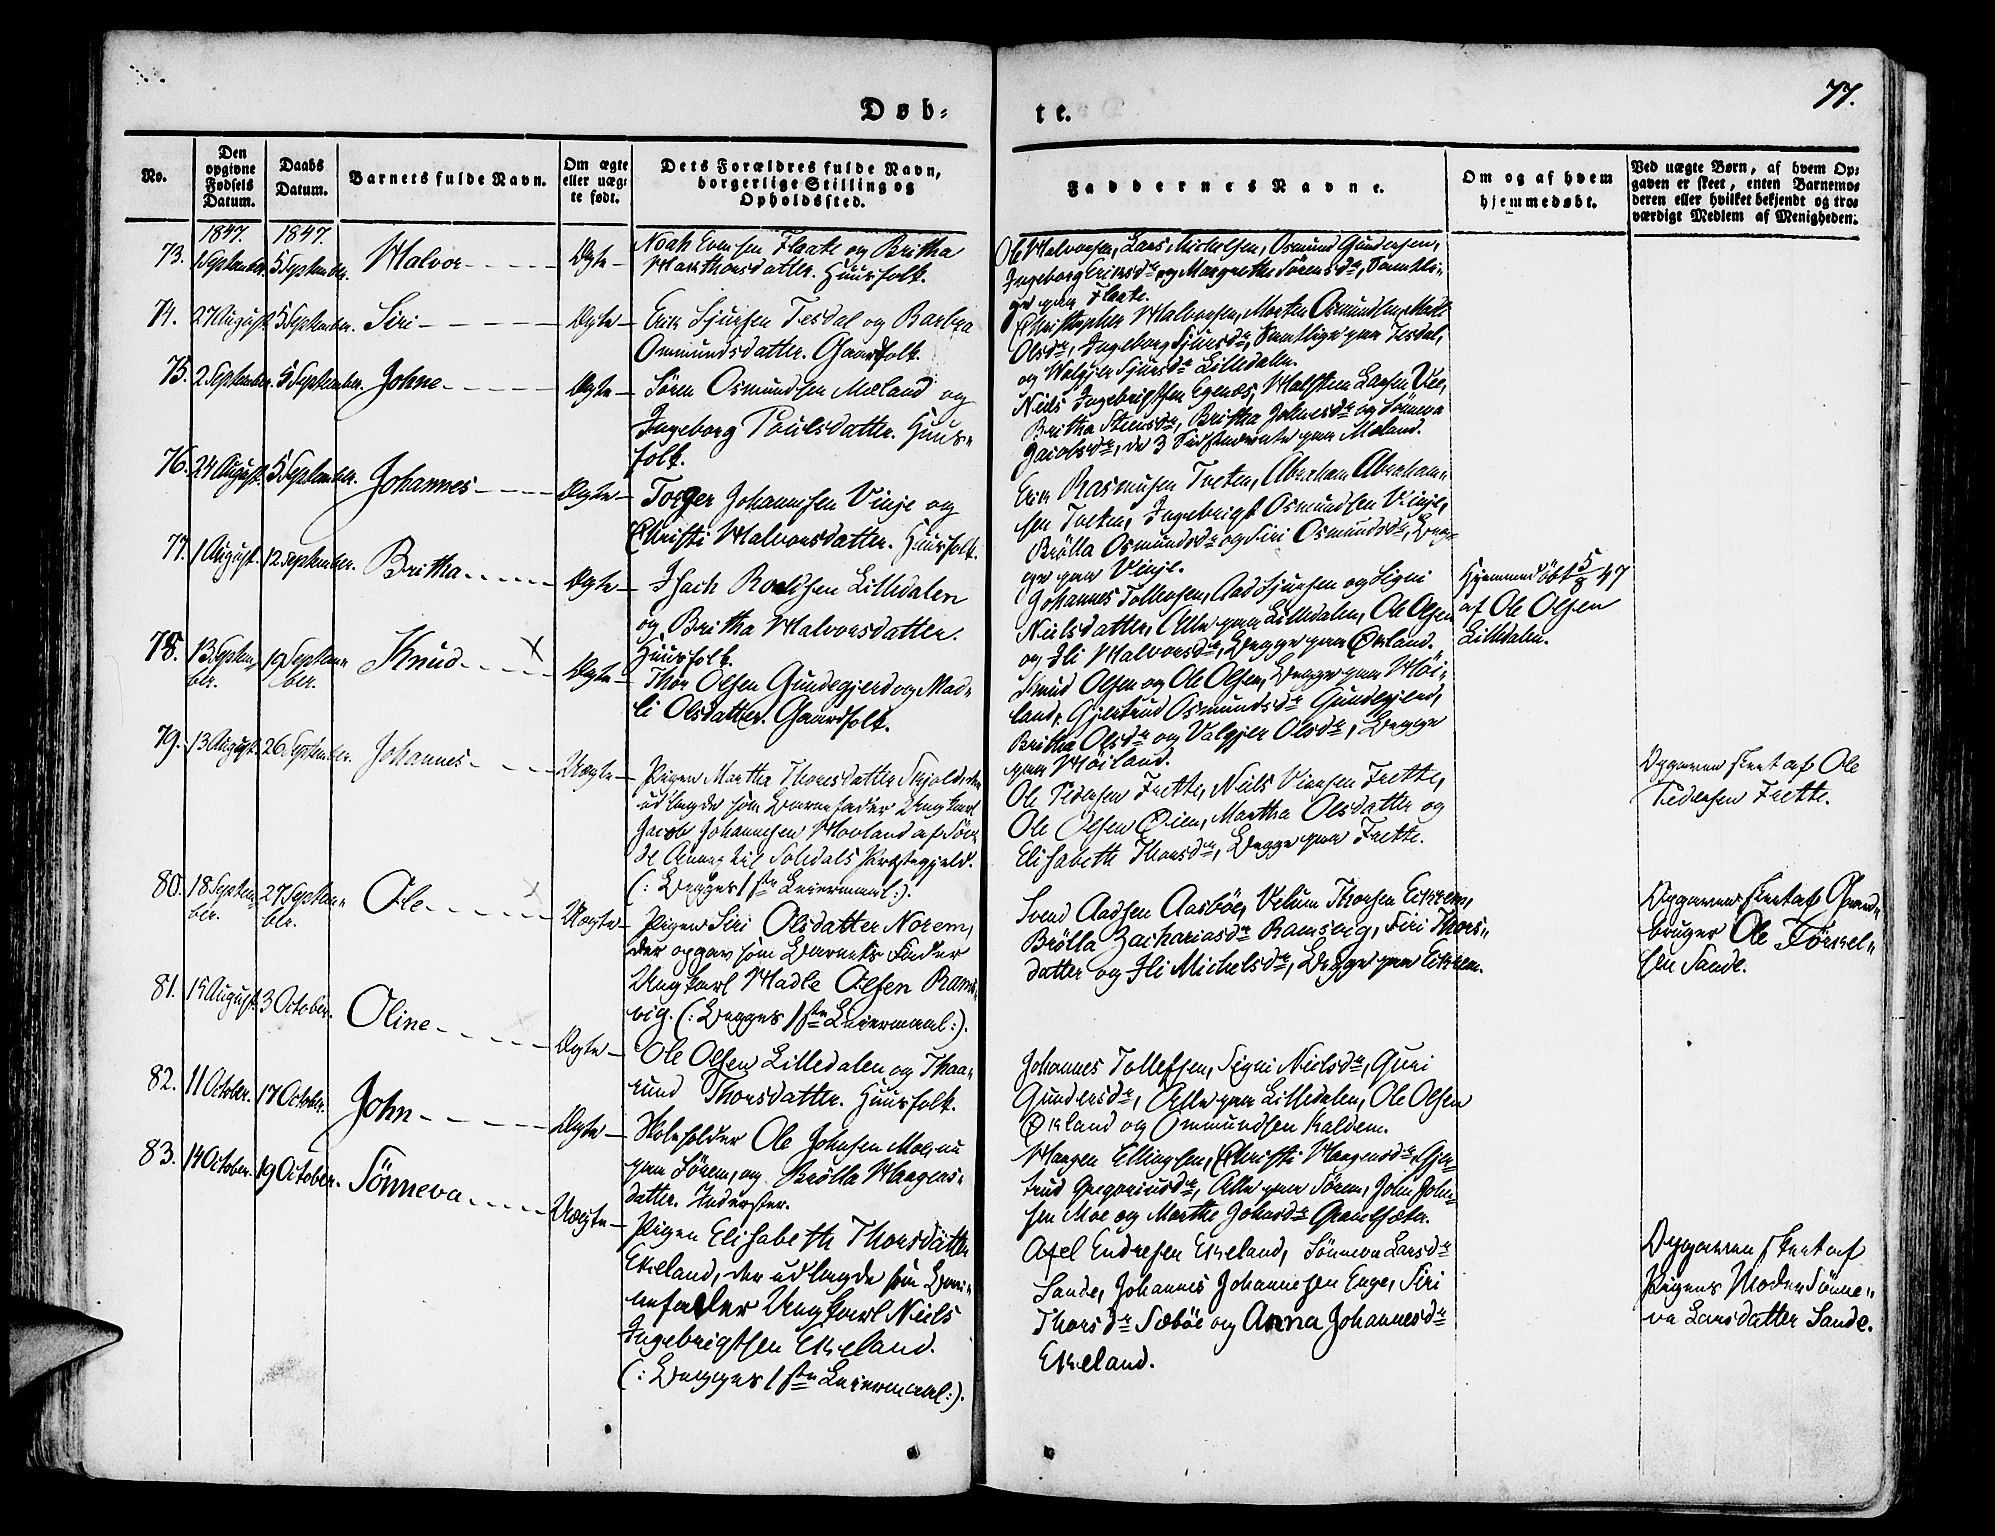 77.
Døb-
te.
No.
Den opgivne Fødsels Datum.
Daabs Datum.
Barnets fulde Navn.
Om ægte eller uægte født.
Dets Forældres fulde Navn, borgerlige Stilling og Opholdssted.
Faddernes Navne.
Om og af hvem hjemmedøbt.
Ved uægte Børn, af hvem Opgaven er skeet, enten Barnemoderen eller hvilket bekjendt og troværdigt Medlem af Menigheden.
1847. 1847.
73. September 5 September. Halvor Ægte
Noah Evensen Flaate og Britha
datter. Huusfolk.
Ole Halvorsen, Lars Osmund Gundersen,
Ingeborg Eriksdr og Margrethe Sørensdr, Samtli-
ge paa Flaate.
74. 27 August 5 September. Siri Ægte
Erik Sjursen Tesdal og Barbra
Ommundsdatter. Gaardfolk.
Christopher Halvorsen, Morten Osmundsen,
Olsdr, Ingeborg Sjursdr, Samtlige paa Tesdal,
og Valgjer Sjursdr Lilledalen.
75. 2 September. 5 September. Johne Ægte
Søren Osmundsen Mæland og
Ingeborg Poulsdatter. Huus-
folk.
Niels Ingebrigtsen Egenæs, Halsten Larsen Vee,
Britha Steensdr, Britha Johnesdr og Sønneva
Jacobsdr, de 3 Sidstnævnte paa Mæland.
76. 24 August. 5 September. Johannes Ægte
Torger Johannesen Vinje og
Christi Halvorsdatter. Huusfolk.
Erik Rasmusen Tveten, Abraham Abraham-
sen Tveten, Ingebrigt Osmundsen Vinje,
Brølla Osmundsdr og Siri Osmundsdr, Beg-
ge paa Vinje.
77. 1 August. 12 September. Britha Ægte
Isach Roaldsen Lilledalen
og Britha Halvorsdatter.
Huusfolk.
Johannes Tollevsen, Aad Sjursen og Signi
Neilsdatter, Alle paa Lilledalen, Ole Olsen
og Ili Halvorsdr, Begge paa Økland.
Hjemmedöbt 5/8 47
af Ole Olsen
Lilledalen.
78. 13 Septem-
ber. 19 Septem-
ber. Knud X Ægte
Thor Olsen Gundegjerd og Mad-
li Olsdatter. Gaardfolk.
Knud Olsen og Ole Olsen, Begge paa Høi-
land, Gjertrud Osmundsdr Gundegjerd,
Britha Olsdr og Valgjer Olsdr, Begge
paa Høiland.
79. 13 August. 26 September. Johannes Uægte
Pigen Martha Thorsdatter
udlagde som Barnefader Ungkarl
Jacob Johannesen Hovland af Sön-
de Annex til Soldals Præstegjeld.
(: Begges 1ste Leiermaal:).
Ole Pedersen Frette, Neils Frette,
Ole Olsen Øien, Martha Olsdatter og
Elisabeth Thorsdr, Begge paa Frette.
Opgaven skeet af Ole
Pedersen Frette.
80. 18 Septem-
ber. 27 Septem-
ber. Ole X Uægte
Pigen Siri Olsdatter Norem,
der opgav som Barnets Fader
Ungkarl Madle Olsen Rams-
vig. (: Begges 1ste Leiermaal:).
Svend Aadsen Aasbøe, Thorsen Eikrem,
Brølla Zachariasdr Ramsvig, Siri Thors-
datter og Ili Michelsdr, Begge paa Eikrem.
Opgaven skeet af Gaard-
bruger Ole
sen Sande.
81. 15 August. 3 October. Oline Ægte
Ole Olsen Lilledalen og Thaa-
rund Thorsdatter. Huusfolk.
Johannes Tollefsen, Signi Nielsdr, Guri
Gundersdr, Alle paa Lilledalen, Ole Olsen
Økland og Ommundsen Kaldem.
82. 11 October. 17 October. John Ægte
Ole Johnsen Moe, nu
paa Sørem, og Brølla Haagens-
datter. Inderster.
Haagen Ellingsen, Christi Haagensdr, Gjer-
trud Gregoriusdr, Alle paa Sørem, John John-
sen Moe og Marthe Johnsdr
83. 14 October. 19 October. Sönneva Uægte
Pigen Elisabeth Thorsdatter
Ekeland, der udlagde som Bar-
nefader Ungkarl Niels
Ingebrigtsen Ekeland.
(: Begges 1ste Leiermaal:).
Axel Endresen Ekeland, Sönneva Larsdr
Sande, Johannes Johannesen Enge, Siri
Thorsdr Sæböe og Anna Johannesdr
Ekeland.
Opgaven skeet af
Pigens Moder Sönne-
va Larsdatter Sande.